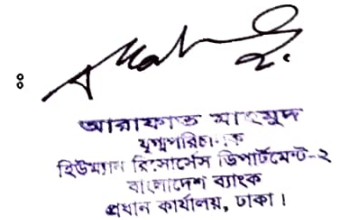 :
আরাফাত মাহমুদ
যুগ্মপরিচালক
হিউম্যান রিসোর্সেস ডিপার্টমেন্ট-২
বাংলাদেশ ব্যাংক
প্রধান কার্যালয়, ঢাকা।